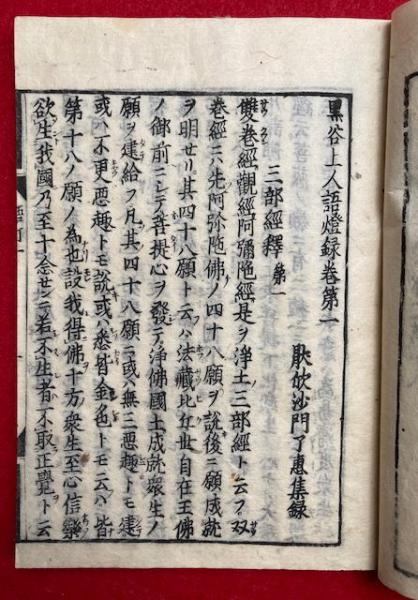 黒谷上人語燈録巻第一
厭欣沙門了惠集録
三部經釋 第一
雙巻經觀經阿彌陁經是ヲ浄土三部經ト云フ双
巻經ニハ先阿弥陁佛ノ四十八願ヲ說後ニ願成就
ヲ明セリ其四十八願ト云ハ法藏比丘世自在王佛
ノ御前ニシテ菩提心ヲ發シテ浄佛國土成就衆生ノ
願ヲ建給フ凡其四十八願ニ或ハ無三悪趣トモ建
或ハ不更悪趣トモ說或ハ悉皆金色トモ云ハ皆
第十八ノ願ノ為也設我得佛十方衆生至心信樂
欲生我國乃至十念センニ若不生者不取正覺ト云